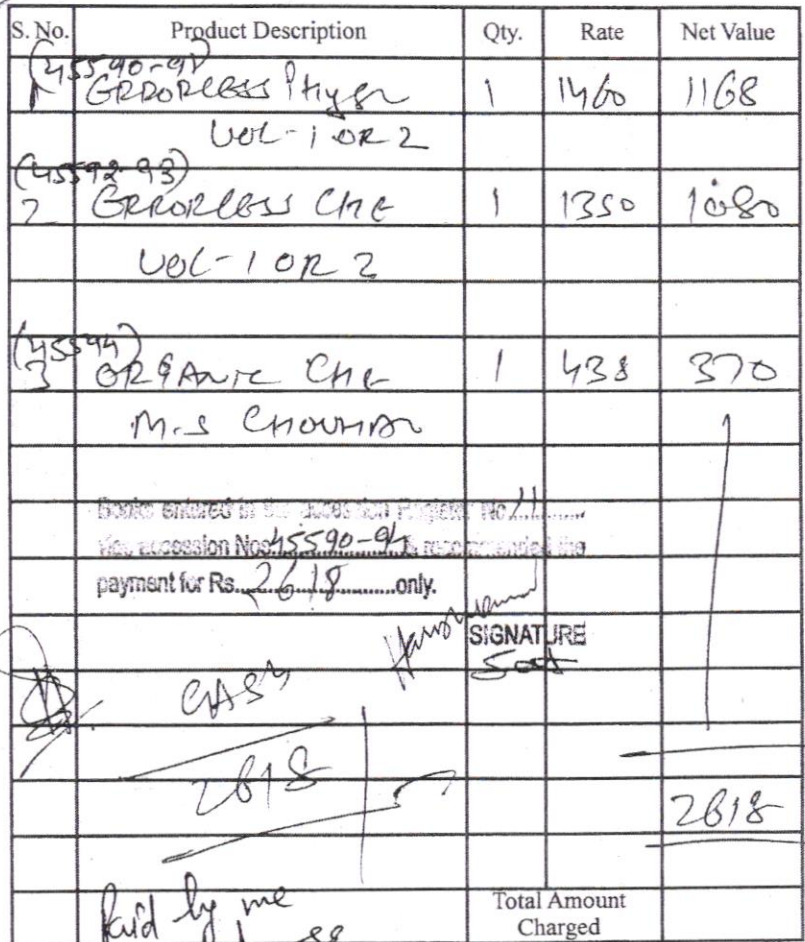 S. No. Product Description Qty. Rate Net Value
(45590-91)
1 ERRORLESS Phy 1 1460 1168
VOL-1 OR 2
(45592-93)
2 ERRORLESS CHE 1 1350 1080
VOL-1 OR 2
(45594)
3 ORGANIC CHE 1 438 370
M.S CHOUHAN
Books entered in the accession Register No 11
accession Nos. 45590-94 is recommended the
payment for Rs. 2618 only.
SIGNATURE
CASH
2618
2618
Paid by me
Total Amount
Charged